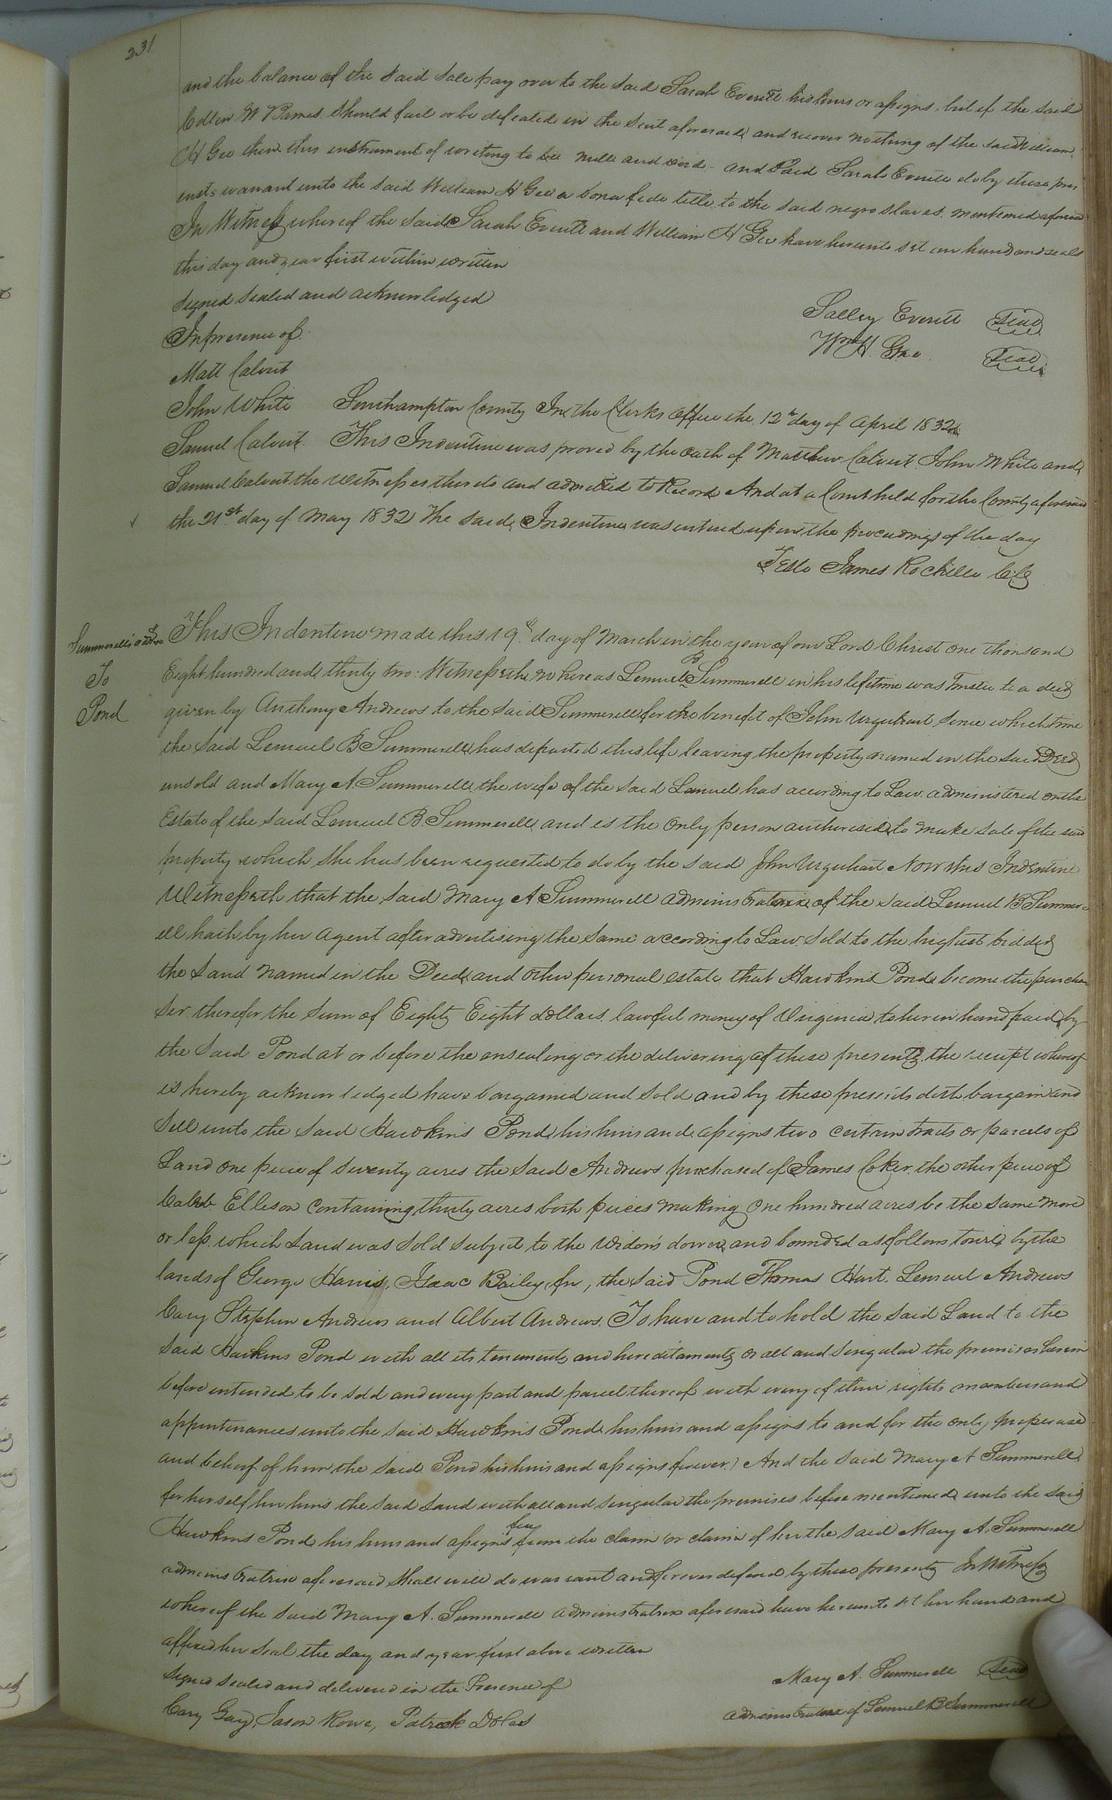 231
and the balance of the said sale pay over to the said Sarah Everitt his heirs or assigns. but if the said
W Barnes should fail or be defeated in the suit aforesaid and recover nothing of the said William
H Gee then this instrument of writing to be null and void. and said Sarah Everitt do by these pres
ents warrant unto the said William H Gee a bona fide title to the said negro slaves mentioned aforesaid
In Witness whereof the said Sarah Everitt and William H Gee have hereunto set our hand and seals
this day and year first within written
Signed sealed and acknowledged
In presence of
Salley Everitt Seal
Wm H. Gee. Seal
Matt Calvert
John White
Samuel Calvert
Southampton County In the Clerks office the 12th day of April 1832
This Indenture was proved by the oath of Matthew Calvert John White and
Samuel Calvert the witnesses thereto and admitted to Record And at a Court held for the County aforesaid
the 21st day of May 1832 The said Indenture was entered upon the proceedings of the day
Teste James Rochelle C.C.
Summerell's
To
Pond
This Indenture made this 19th day of March in the year of our Lord Christ one thousand
Eight hundred and thirty two. Witnesseth whereas Lemuel B Summerell in his lifetime was Trustee to a deed
given by Anthony Andrews to the said Summerell for the benefit of John Urquhart, since which time
the said Lemuel B Summerell has departed this life leaving the property named in the said Deed
unsold and Mary A. Summerell the wife of the said Lemuel has according to Law administered on the
Estate of the said Lemuel B Summerell and is the only person authorised to make sale of the said
property which she has been requested to do by the said John Urquhart Now this Indenture
Witnesseth that the said Mary A Summerell administratrix of the said Lemuel B Summer
ell hath by her agent after advertising the same according to Law sold to the highest bidder
the Land named in the Deed and other personal estate that Hawkins Pond became the purcha
ser therefor the sum of Eighty Eight dollars lawful money of Virginia to her in hand paid by
the said Pond at or before the ensealing or the delivering of these presents the receipt whereof
is hereby acknowledged have bargained and sold and by these presents doth bargain and
sell unto the said Hawkins Pond his heirs and assigns two certain tracts or parcels of
Land one piece of seventy acres the said Andrews purchased of James Coker, the other piece of
Caleb Ellison containing thirty acres both pieces making one hundred acres be the same more
or less which Land was sold subject to the widow's dower, and bounded as follows towit by the
lands of George Harris, Isaac Bailey, Jr, the said Pond Thomas Hart. Lemuel Andrews
Cary Stephen Andrews and Albert Andrews, To have and to hold the said Land to the
said Hawkins Pond with all its tenements and hereditaments or all and singular the premises herein
before intended to be sold and every part and parcel thereof with every of their rights members and
appurtenances unto the said Hawkins Pond his heirs and assigns to and for the only proper use
and behoof of him the said Pond his heirs and assigns forever. And the said Mary A Summerell
for herself her heirs the said Land with all and singular the premises before mentioned unto the said
Hawkins Pond his heirs and assigns free from the claim or claims of her the said Mary A. Summerell
administratrix aforesaid shall will do warrant and forever defend by these presents In Witness
whereof the said Mary A. Summerell administratrix aforesaid have hereunto set her hand and
affixed her seal the day and year first above written
Signed sealed and delivered in the Presence of
Mary A. Summerell Seal
administratrix of Lemuel B Summerell
Cary Gay, Jason Rowe, Patrick Doles